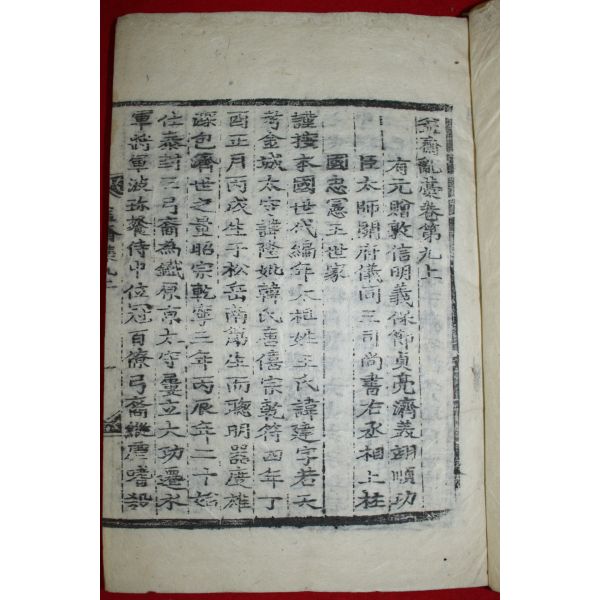 益齋亂藁卷第九上
有元贈敦信明義保節貞亮濟美翊順功
臣太師開府儀同三司尚書右丞相上柱
國忠憲王世家
謹按本國世代編年太祖姓王氏諱建字若天
考金城太守諱隆妣韓氏唐僖宗乾符四年丁
酉正月丙戌生于松岳南第生而聰明器度雄
深包濟世之量昭宗乾寧三年丙辰年二十始
仕泰封王弓裔爲鐵原京太守屢立大功遷水
軍將軍波珍餐侍中位冠百僚弓裔縱虐嗜殺